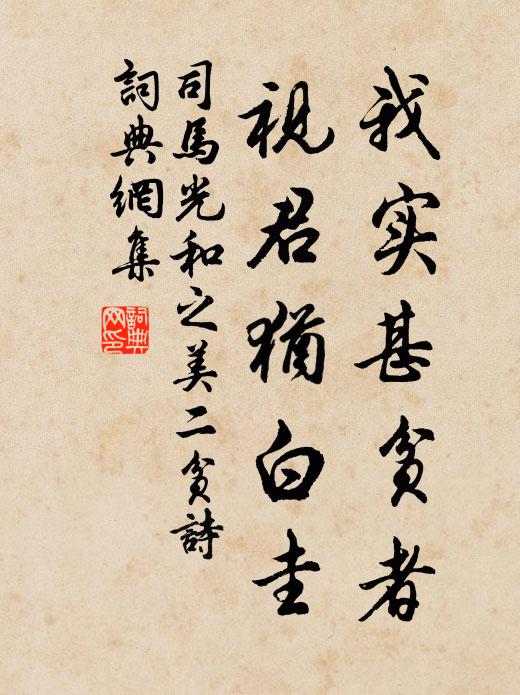 我实甚贫者
視君猶白圭
司馬光和之美二贫詩
詞典網集
詞典网印